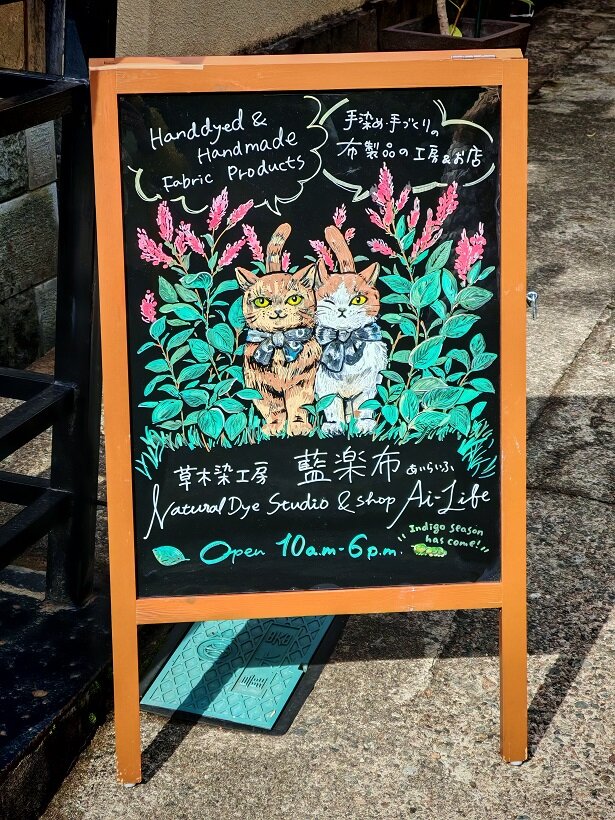 Handdyed &
Handmade
Fabric Products
手染め・手づくりの
布製品の工房&お店
草木染工房 藍楽布 あいらいふ
Natural Dye Studio & shop Ai-Life
Open 10a.m-6p.m.
"Indigo season
has come!"